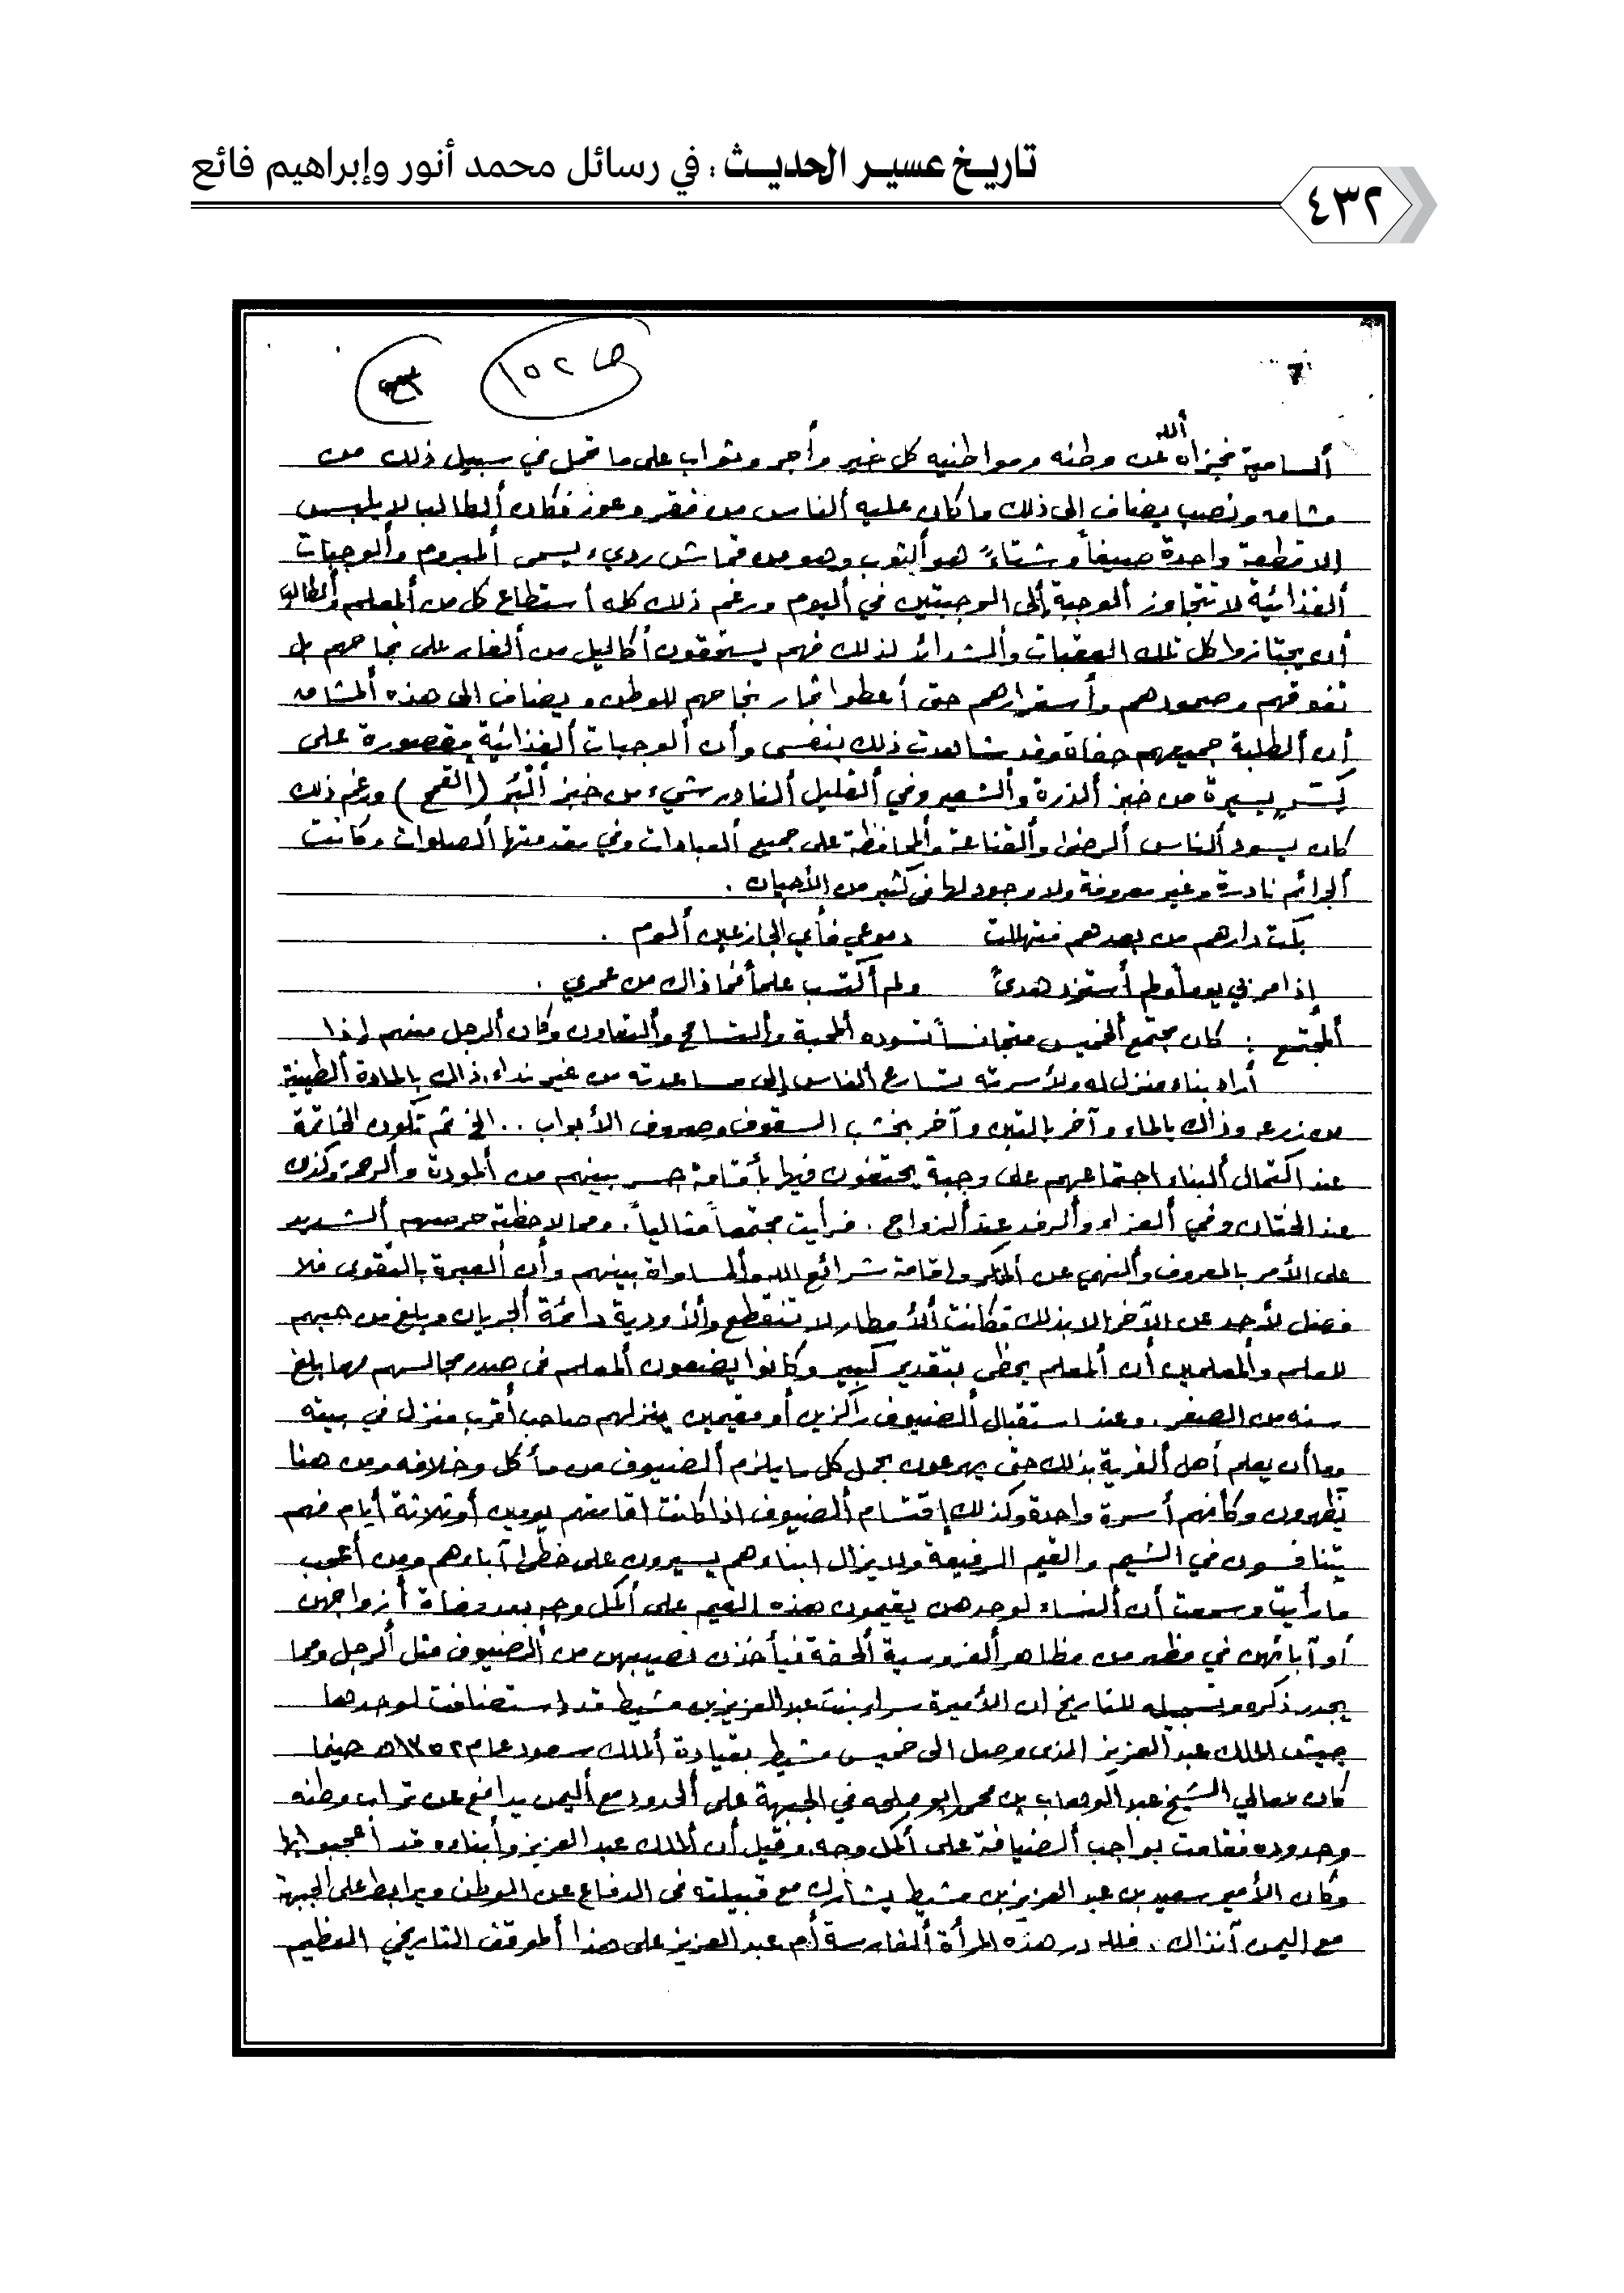 تاريخ عسير الحديث : في رسائل محمد أنور وإبراهيم فائع
٤٣٢
ص ١٥٢
ألسامية فجزاه ألله عن وطنه ومواطنيه كل خير وأجر وثواب على ما تحمل في سبيل ذلك من
مشاقه ونصب يضاف الى ذلك ما كان عليه ألناس من فقر وعوز فكان ألطالب لا يلبس
الا قطعة واحدة صيفاً وشتاءً هو ألثوب وهو من قماش رديء يسمى ألمبروم وألوجبات
ألغذائية لا تتجاوز ألوجبة إلى الوجبتين في أليوم ورغم ذلك كله أستطاع كل من ألمعلم وألطالب
أن يجتازوا كل تلك العقبات وألشدائد لذلك فهم يستحقون أكاليل من ألغار على نجاحهم بل
تفوقهم وصمودهم وأستمرارهم حتى أعطوا ثمار نجاحهم للوطن ويضاف الى هذه ألمشاقه
أن ألطلبة جميعهم حفاة وقد شاهدت ذلك بنفسي وأن ألوجبات ألغذائية مقصورة على
كِسَرٍ يسيرة من خبز ألذرة وألشعير وفي ألقليل ألنادر شيء من خبز ألبُر (القمح) ورغم ذلك
كان يسود ألناس ألرضى وألقناعة وألمحافظة على جميع ألعبادات وفي مقدمتها ألصلوات وكانت
ألجرائم نادرة وغير معروفة ولا وجود لها في كثير من الأحيان .
بكت دارهم من بعدهم فتهللت دموعي فأي الجازعين ألوم .
إذا مر بي يوماً ولم أستزد هدىً ولم أكتسب علماً فما ذاك من عمري .
ألمجتمع : كان مجتمع ألخميس متجانساً تسوده ألمحبة وألتسامح وألتعاون وكان ألرجل منهم إذا
أراد بناء منزل له ولأسرته تسارع ألناس إلى مساعدته من غير نداء. ذاك بالمادة ألطينية
من زرعه وذاك بالماء وآخر بالتبن وآخر بخشب السقوف وصروف الأبواب .. الخ ثم تكون الخاتمة
عند اكتمال ألبناء اجتماعهم على وجبة يحتفون فيها بأقامة جسر بينهم من ألمودة وألرحمة وكذلك
عند الختان وفي ألعزاء وألرفد عند ألزواج . فرأيت مجتمعاً مثالياً . ومما لاحظته حرصهم ألشديد
على الأمر بالمعروف وألنهي عن ألمنكر وإقامة شرائع الله وألمساواة بينهم وأن ألعبرة بالتقوى فلا
فضل لأحد عن الآخر الا بذلك فكانت ألأمطار لا تنقطع وألأودية دائمة ألجريان وبلغ من حبهم
للعلم وألمعلمين أن ألمعلم يحظى بتقدير كبير وكانوا يضعون ألمعلم في صدر مجالسهم مهما بلغ
سنه من الصغر . وعند استقبال ألضيوف زائرين أو مقيمين ينزلهم صاحب أقرب منزل في بيته
وما أن يعلم أهل ألقرية بذلك حتى يهرعون بحمل كل ما يلزم ألضيوف من مأكل وخلافه ومن هنا
يظهرون وكأنهم أسرة واحدة وكذلك إقتسام ألضيوف اذا كانت اقامتهم يومين أو ثلاثة أيام فهم
يتنافسون في الشيم والقيم الرفيعة ولا يزال ابناءهم يسيرون على خطى آباءهم ومن أعجب
ما رأيت وسمعت أن ألنساء لوحدهن يقيمون هذه القيم على أكمل وجه بعد وفاة أزواجهن
أو آبائهن في مظهر من مظاهر ألفروسية ألحقة فيأخذن نصيبهن من ألضيوف مثل ألرجل ومما
يجدر ذكره وتسجيله للتاريخ ان الأميرة سراء بنت عبد العزيز بن مشيط قد استضافت لوحدها
جيش الملك عبد ألعزيز الذى وصل الى خميس مشيط بقيادة ألملك سعود عام ١٣٥٢هـ حينما
كان معالي الشيخ عبد الوهاب بن محمد ابو ملحه في الجبهة على ألحدود مع أليمن يدافع عن تراب وطنه
وحدوده فقامت بواجب ألضيافة على أكمل وجه. وقيل أن ألملك عبد العزيز وأبناءه قد أعجبوا بها
وكان الأمير سعيد بن عبد العزيز بن مشيط يشارك مع قبيلته في الدفاع عن الوطن ويرابط على الجبهة
مع اليمن آنذاك . فلله در هذه المرأة ألفارسة أم عبد العزيز على هذا ألموقف التاريخي العظيم